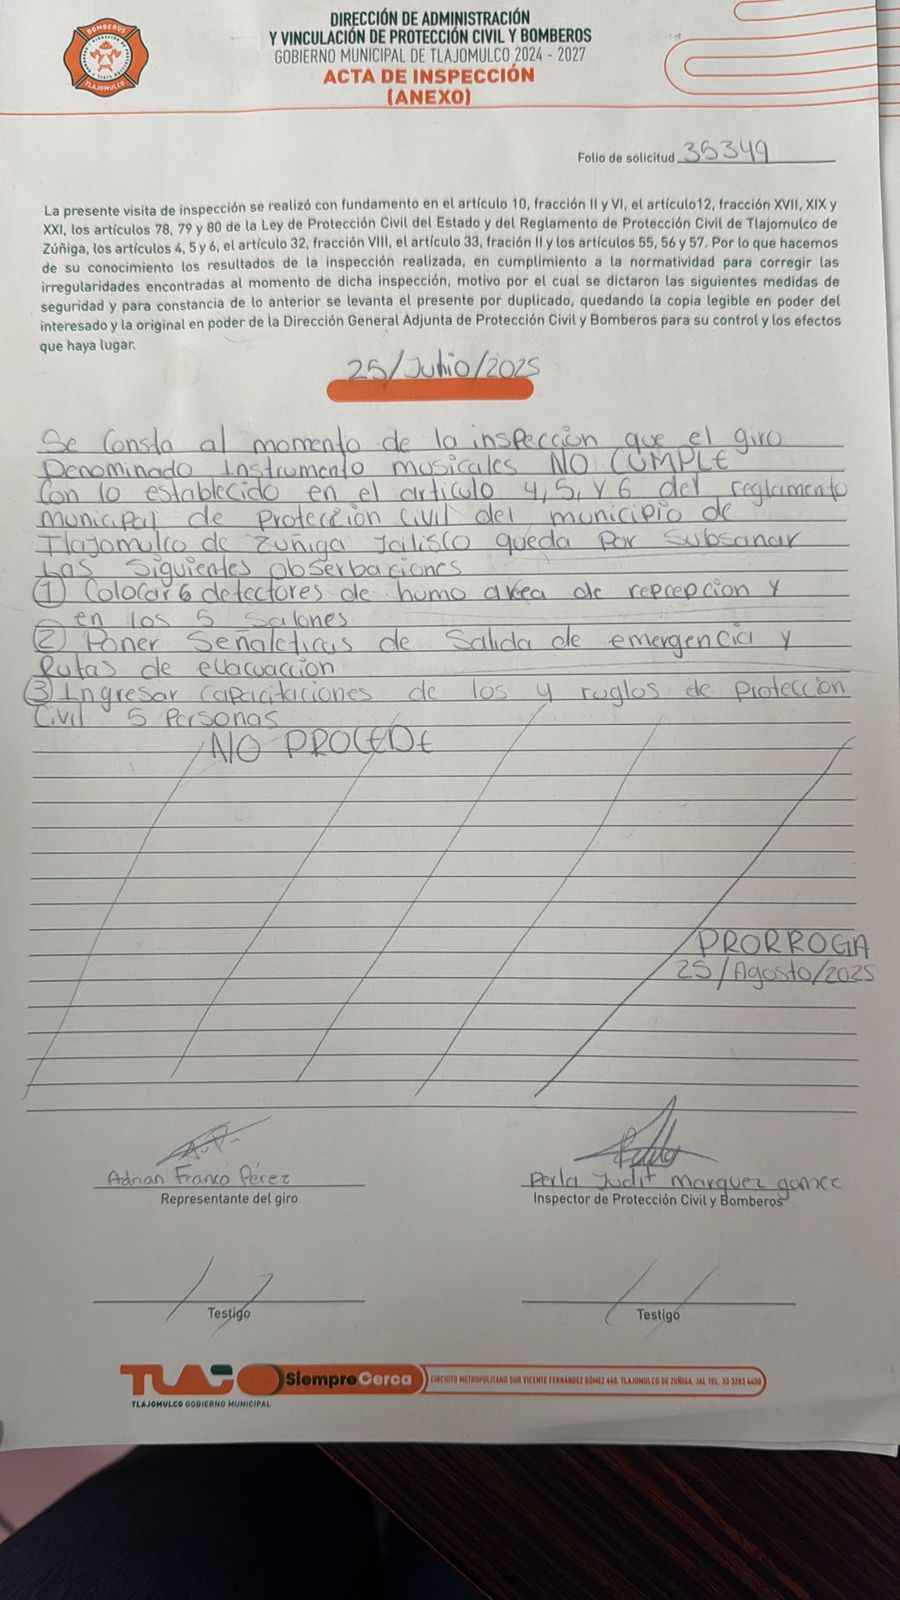 BOMBEROS
TLAJOMULCO
DIRECCIÓN DE ADMINISTRACIÓN
Y VINCULACIÓN DE PROTECCIÓN CIVIL Y BOMBEROS
GOBIERNO MUNICIPAL DE TLAJOMULCO 2024 - 2027
ACTA DE INSPECCIÓN
(ANEXO)
Folio de solicitud 35349
La presente visita de inspección se realizó con fundamento en el artículo 10, fracción II y VI, el artículo12, fracción XVII, XIX y
XXI, los artículos 78, 79 y 80 de la Ley de Protección Civil del Estado y del Reglamento de Protección Civil de Tlajomulco de
Zúñiga, los artículos 4, 5 y 6, el artículo 32, fracción VIII, el artículo 33, fración II y los artículos 55, 56 y 57. Por lo que hacemos
de su conocimiento los resultados de la inspección realizada, en cumplimiento a la normatividad para corregir las
irregularidades encontradas al momento de dicha inspección, motivo por el cual se dictaron las siguientes medidas de
seguridad y para constancia de lo anterior se levanta el presente por duplicado, quedando la copia legible en poder del
interesado y la original en poder de la Dirección General Adjunta de Protección Civil y Bomberos para su control y los efectos
que haya lugar.
25/Julio/2025
Se Consta al momento de la inspección que el giro
Denominado Instrumento musicales NO CUMPLE
Con lo establecido en el articulo 4, 5, Y 6 del reglamento
Municipal de Protección Civil del municipio de
Tlajomulco de Zuñiga Jalisco queda Por Subsanar
Las Siguientes obserbaciones
1 Colocar 6 detectores de humo area de repcepcion y
en los 5 Salones
2 Poner Señaleticas de Salida de emergencia y
Rutas de evacuacción
3 Ingresar Capacitaciones de los 4 ruglos de Protección
Civil 5 Personas
NO PROCEDE
PRORROGA
25/Agosto/2025
Adrian Franco Pérez
Representante del giro
Perla Judit Marquez gomez
Inspector de Protección Civil y Bomberos
Testigo
Testigo
TLAJO SiempreCerca
CIRCUITO METROPOLITANO SUR VICENTE FERNÁNDEZ GÓMEZ 440. TLAJOMULCO DE ZUÑIGA, JAL TEL. 33 3283 4400
TLAJOMULCO GOBIERNO MUNICIPAL